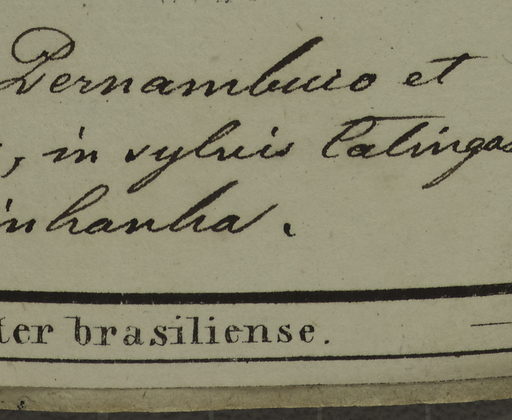 Pernambuco et
, in sylvis Catingas
inhanha.
ter brasiliense.